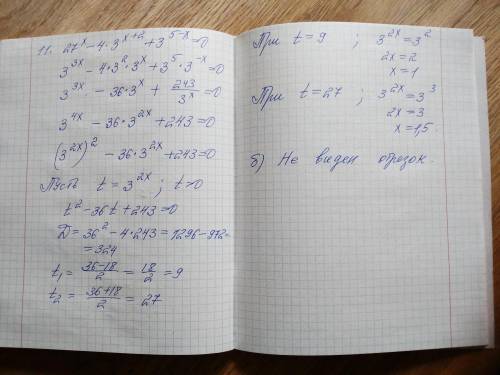 11. 27^x - 4·3^(x+2) + 3^(5-x) = 0
3^(3x) - 4·3^2·3^x + 3^5·3^(-x) = 0
3^(3x) - 36·3^x + 243/3^x = 0
3^(4x) - 36·3^(2x) + 243 = 0
(3^(2x))^2 - 36·3^(2x) + 243 = 0
Пусть t = 3^(2x); t>0
t^2 - 36t + 243 = 0
D = 36^2 - 4·243 = 1296 - 972 =
= 324
t₁ = (36-18)/2 = 18/2 = 9
t₂ = (36+18)/2 = 27
При t = 9 ; 3^(2x) = 3^2
2x = 2
x = 1
При t = 27 ; 3^(2x) = 3^3
2x = 3
x = 1,5.
б) Не виден отрезок.